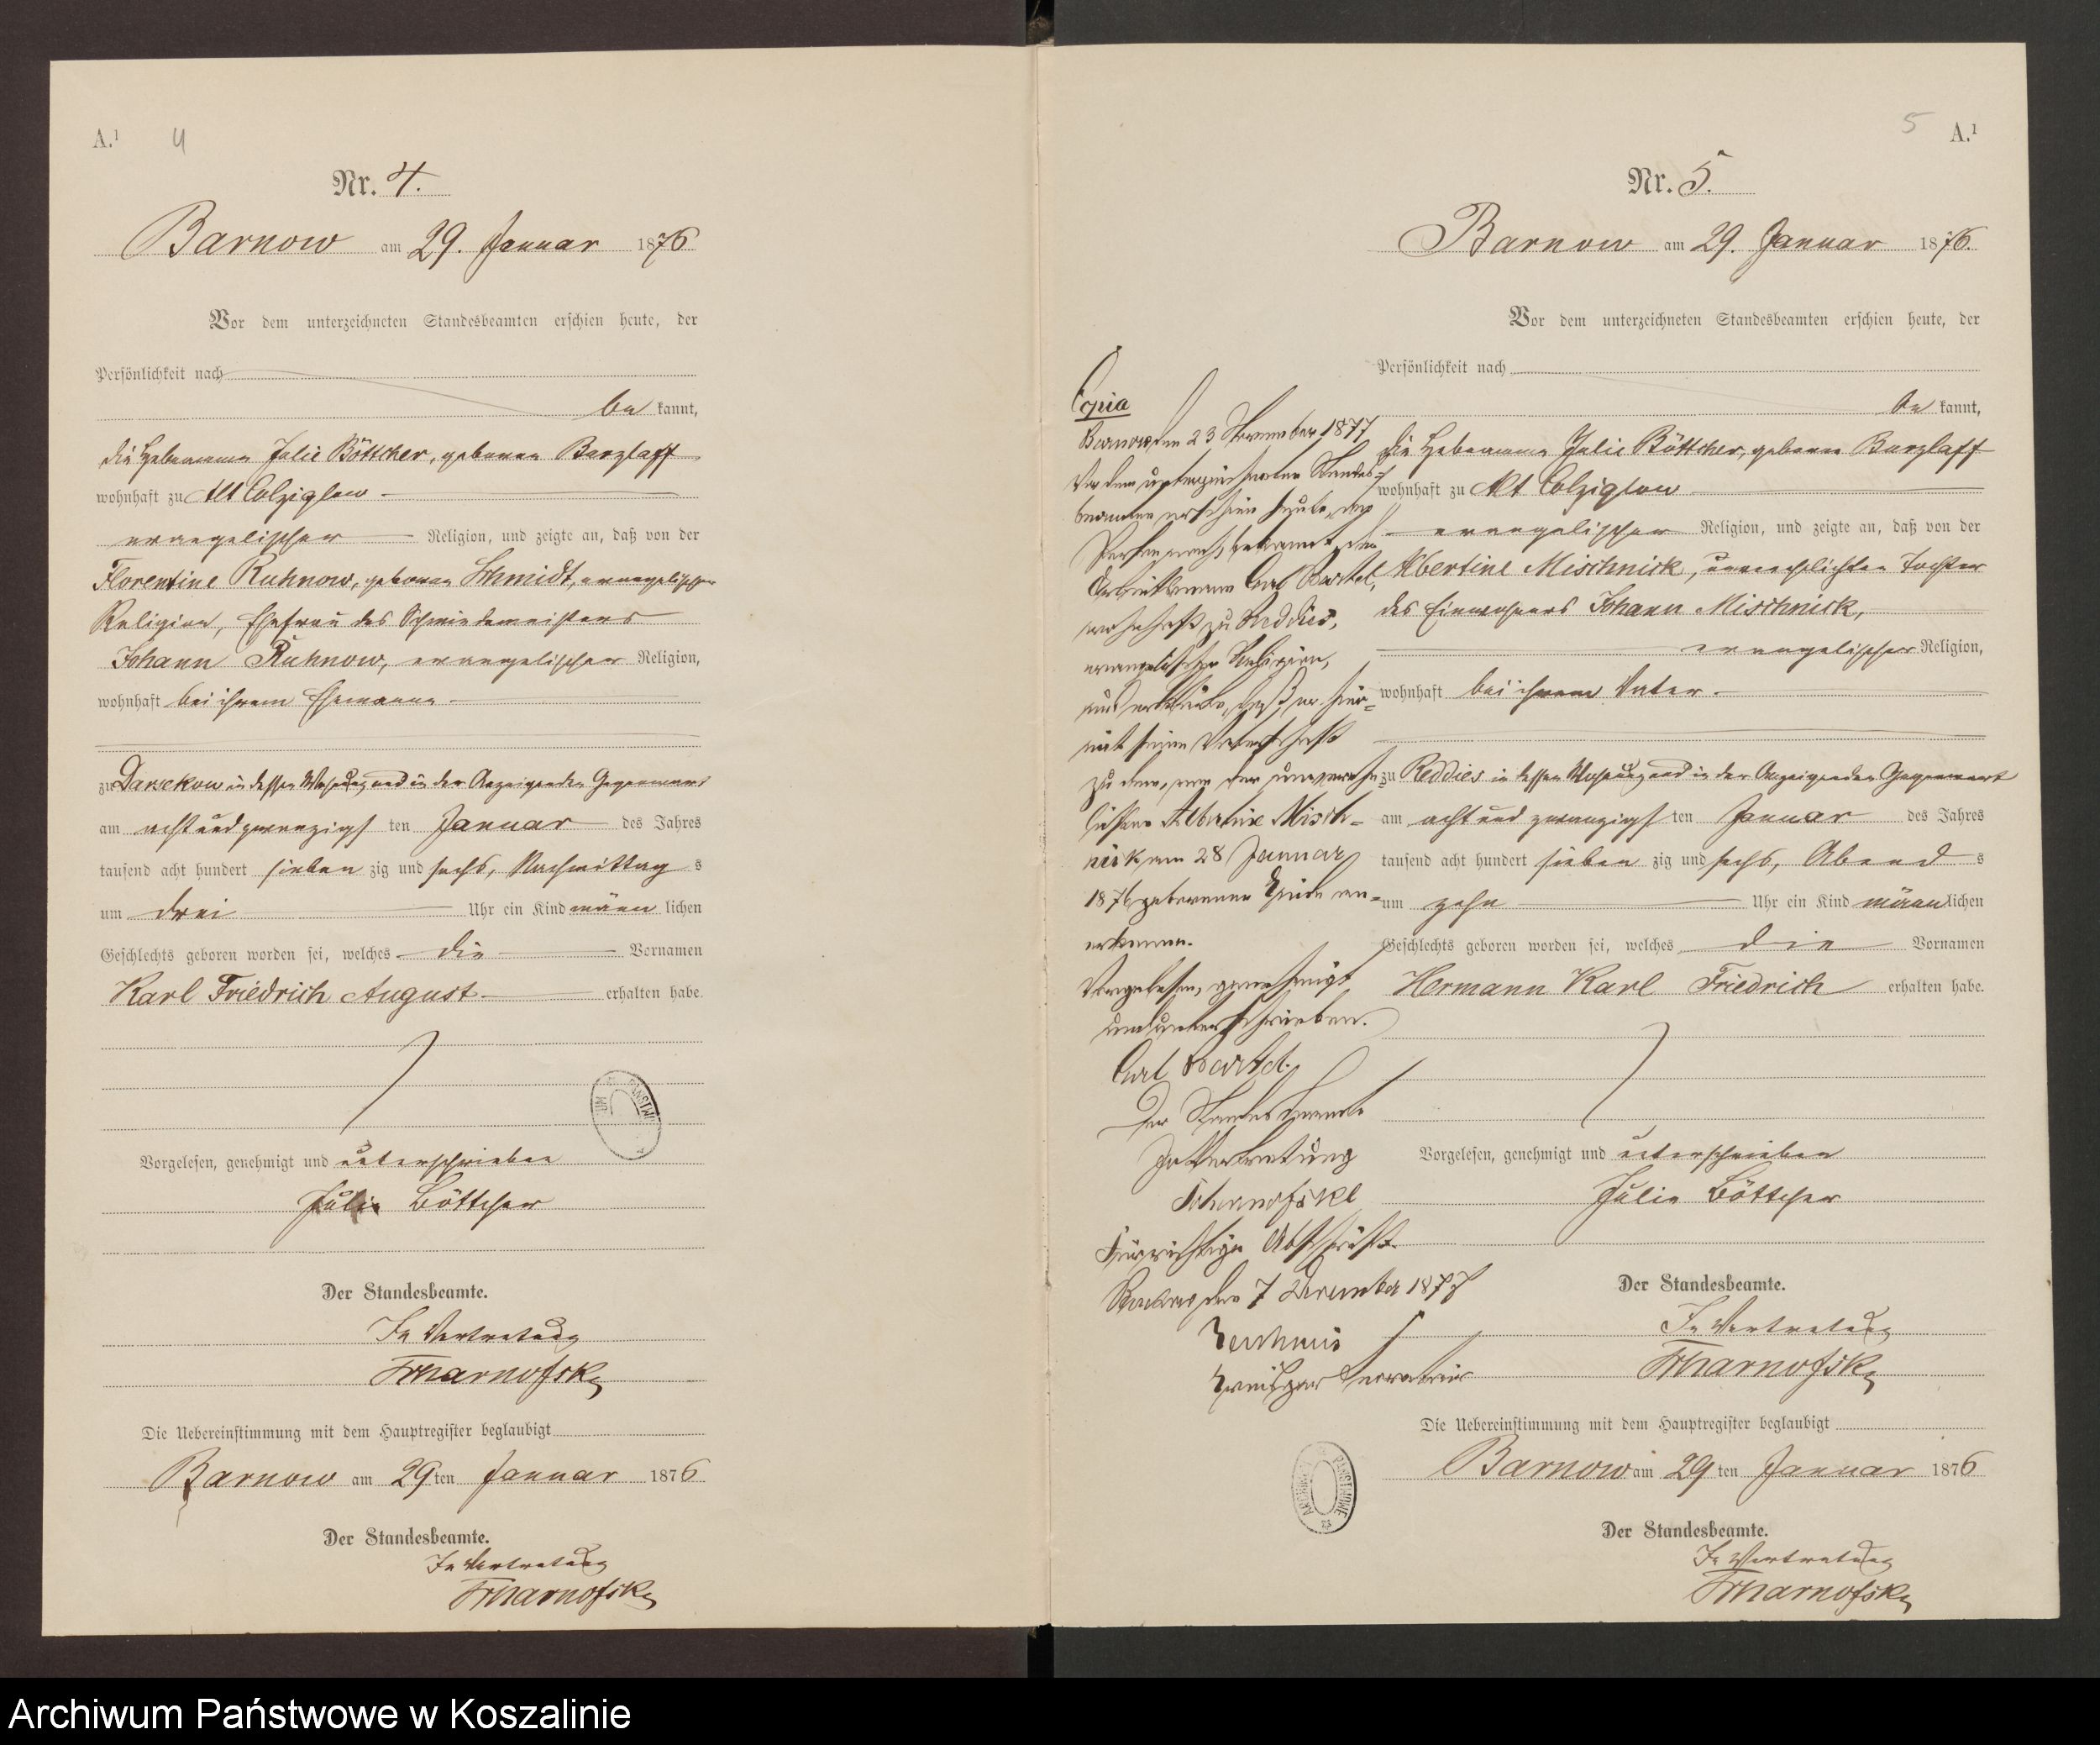 A.¹ 4
Nr. 4.
Barnow am 29. Januar 1876
Vor dem unterzeichneten Standesbeamten erschien heute, der
Persönlichkeit nach
be kannt,
die Hebamme Julie Böttcher, geborene Barzlaff
wohnhaft zu Alt Colziglow
evangelischer Religion, und zeigte an, daß von der
Florentine Ruhnow, geborenen Schmidt, evangelischer
Religion, Ehefrau des Schmiedemeisters
Johann Ruhnow, evangelischer Religion,
wohnhaft bei ihrem Ehemanne
zu Darsekow in dessen Wohnung und in der Anzeigenden Gegenwart
am acht und zwanzigs ten Januar des Jahres
tausend acht hundert sieben zig und sechs, Nachmittag s
um drei Uhr ein Kind männ lichen
Geschlechts geboren worden sei, welches die Vornamen
Karl Friedrich August erhalten habe.
Vorgelesen, genehmigt und unterschrieben
Julie Böttcher
Der Standesbeamte.
In Vertretung
Die Uebereinstimmung mit dem Hauptregister beglaubigt
Barnow am 29 ten Januar 1876
Der Standesbeamte.
In Vertretung
5 A.¹
Nr. 5.
Barnow am 29. Januar 1876.
Vor dem unterzeichneten Standesbeamten erschien heute, der
Persönlichkeit nach
be kannt,
die Hebamme Julie Böttcher, geborene Barzlaff
wohnhaft zu Alt Colziglow
evangelischer Religion, und zeigte an, daß von der
Albertine Mischnick, unverehelichten Tochter
des Einwohners Johann Mischnick,
evangelischer Religion,
wohnhaft bei ihrem Vater
zu Reddies in dessen Wohnung und in der Anzeigenden Gegenwart
am acht und zwanzigs ten Januar des Jahres
tausend acht hundert sieben zig und sechs, Abend s
um zehn Uhr ein Kind männ lichen
Geschlechts geboren worden sei, welches die Vornamen
Hermann Karl Friedrich erhalten habe.
Vorgelesen, genehmigt und unterschrieben
Julie Böttcher
Der Standesbeamte.
In Vertretung
Die Uebereinstimmung mit dem Hauptregister beglaubigt
Barnow am 29 ten Januar 1876
Der Standesbeamte.
In Vertretung
Copia
Barnow, den 23 November 1877
Vor dem unterzeichneten Standes-
beamten erschien heute, der
Person nach bekannt, der
Arbeitsmann Carl Bartel,
wohnhaft zu Reddies,
evangelischer Religion,
und erklärte, daß er hier-
mit seine Vaterschaft
zu dem, von der unverehe-
lichten Albertine Misch-
nick am 28 Januar
1876 geborenen Kinde an-
erkenne.
Vorgelesen, genehmigt
und unterschrieben.
Carl Bartel.
Der Standesbeamte
In Vertretung
Für richtige Abschrift.
den 7 December 1877
Archiwum Państwowe w Koszalinie